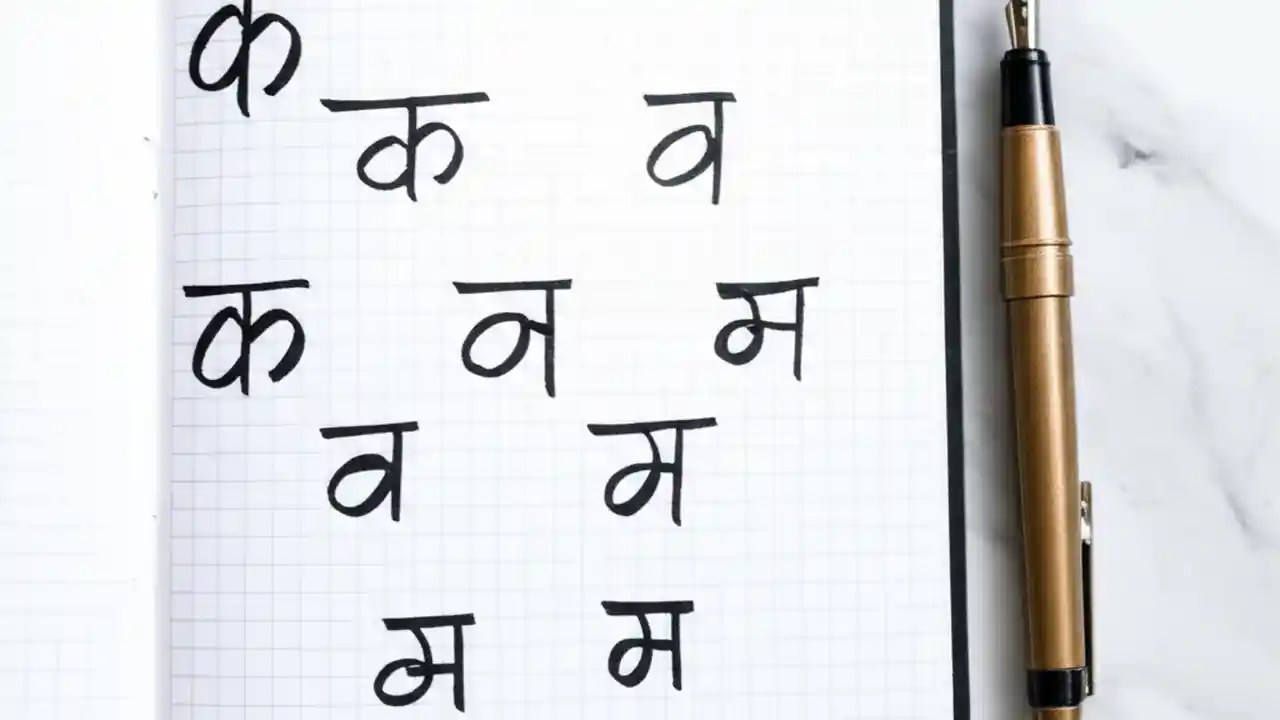 क
क व
क न म
व म
म म